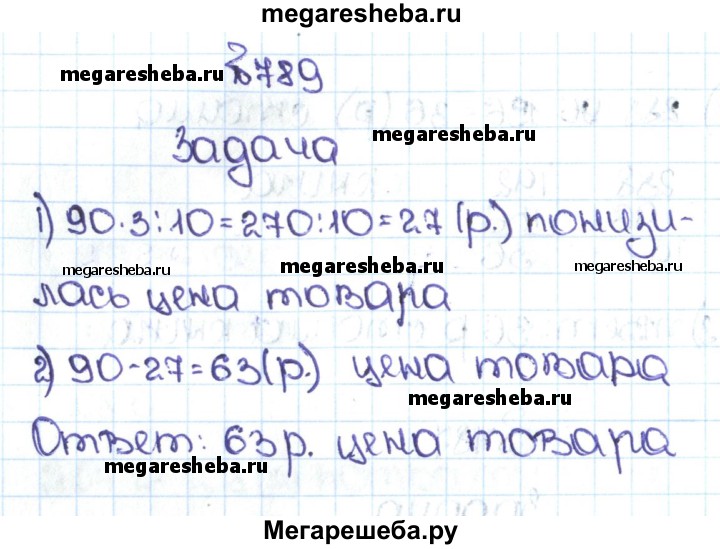 megaresheba.ru
№789
megaresheba.ru
Задача
megaresheba.ru
1) 90·3:10=270:10=27 (р.) понизи-
megaresheba.ru megaresheba.ru megaresheba.ru
лась цена товара
2) 90-27=63(р.) цена товара
megaresheba.ru
Ответ: 63р. цена товара
megaresheba.ru
Мегарешеба.ру